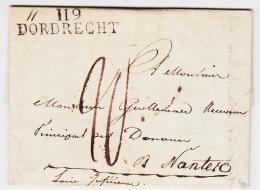 119
DORDRECHT
A Monsieur
Monsieur Guillemard Receveur
Principal des Douanes
A Nantes
Loire Inférieure